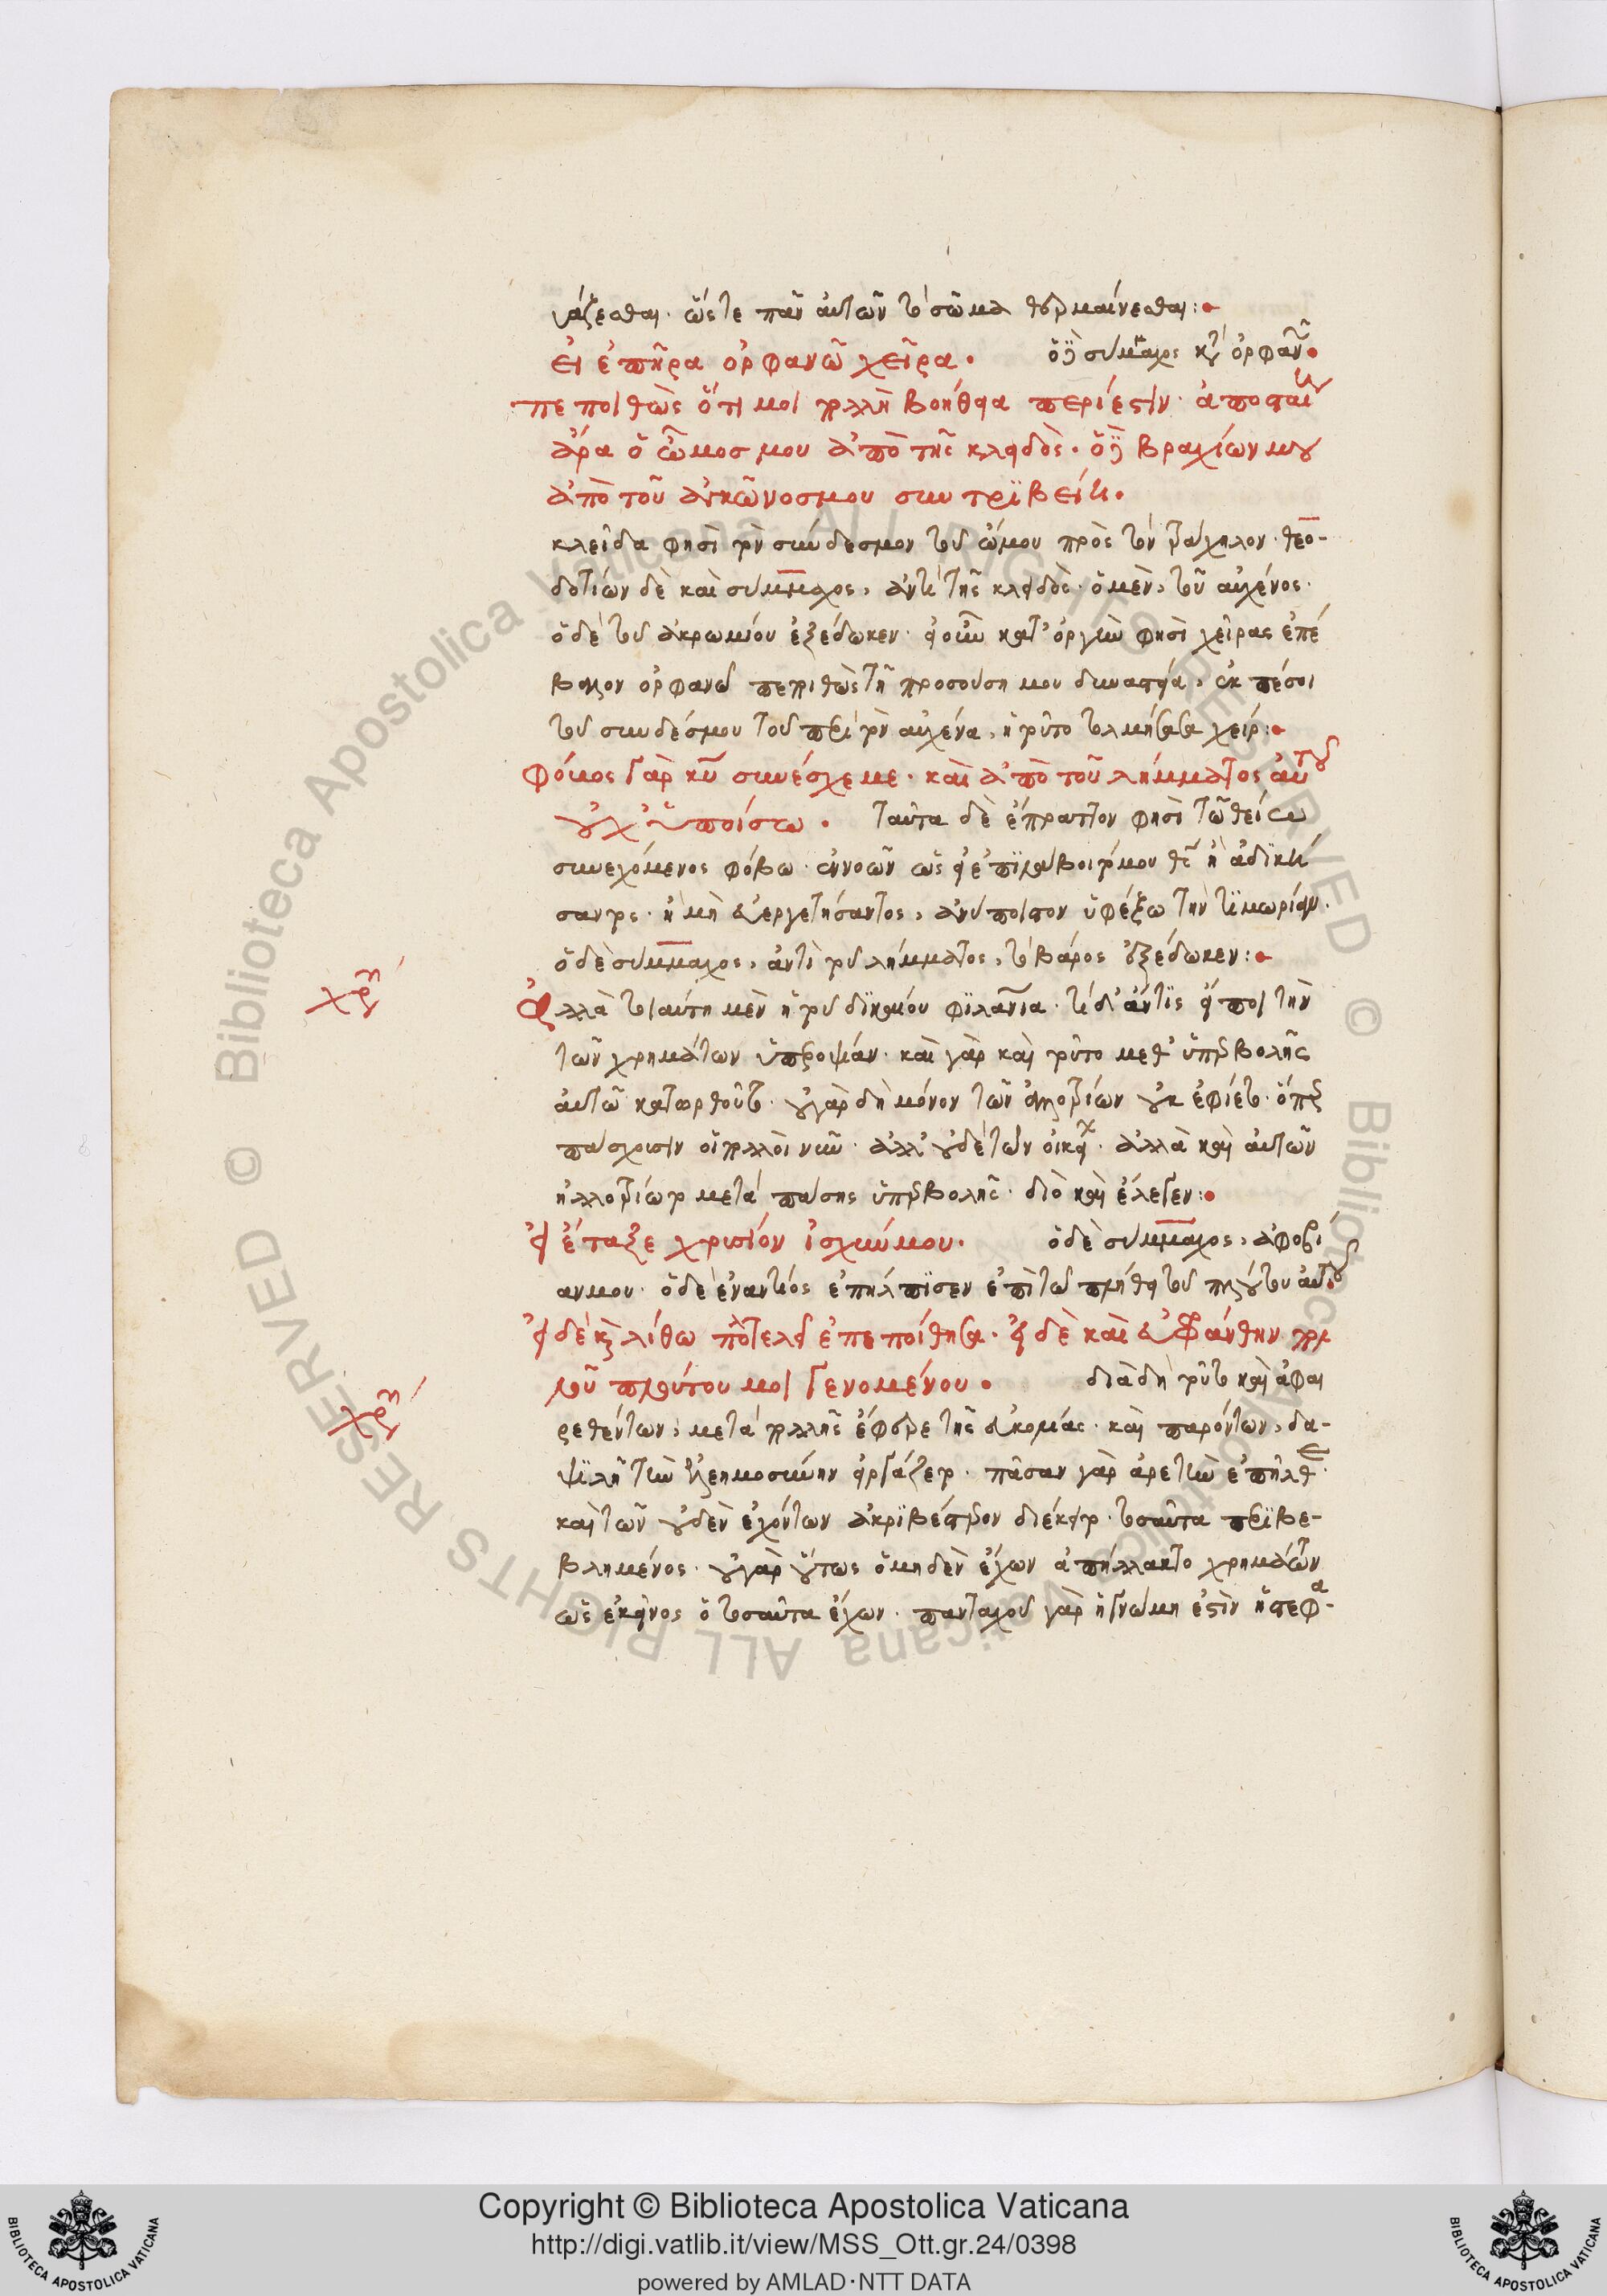 νάζεσθαι. ὥστε πᾶν αὐτῶν τὸ σῶμα θερμαίνεσθαι:
εἰ ἐπῆρα ὀρφανῶ χεῖρα. ὁ δὲ σύμμαχος κατὰ ὀρφανοῦ
πεποιθὼς ὅτι μοι πολλὴ βοήθεια περίεστιν. ἀποσταίη
ἄρα ὁ ὦμος μου ἀπὸ τῆς κλειδὸς. ὁ δὲ βραχίων μου
ἀπὸ τοῦ ἀγκῶνος μου συντριβείη.
κλεῖδα φησὶ τὸν σύνδεσμον τοῦ ὤμου πρὸς τὸν τράχηλον. θεο-
δοτίων δὲ καὶ σύμμαχος, ἀντὶ τῆς κλειδὸς. ὁ μὲν, τοῦ αὐχένος.
ὁ δὲ τοῦ ἀκρωμίου ἐξέδωκεν. εἰ οὖν κατ' ὀργὴν φησὶ χεῖρας ἐπέ
βαλλον ὀρφανῶ πεποιθὼς τῆ προσούση μου δυναστεία, ἐκπέσοι
τοῦ συνδέσμου τοῦ περὶ τὸν αὐχένα, ἡ τοῦτο τολμήσασα χείρ:
φόβος γὰρ κυ συνέσχε με. καὶ ἀπὸ τοῦ λήμματος αὐτοῦ
οὐχ ὑποίσω. ταῦτα δὲ ἔπραττον φησὶ τῶ θείω
συνεχόμενος φόβω. ἐννοῶν ὡς εἰ ἐπιλάβοιτό μου θς ἢ ἀδική
σαντος. ἢ μὴ εὐεργετήσαντος, ἀνύποιστον ὑφέξω τὴν τιμωρίαν.
ὁ δὲ σύμμαχος, ἀντὶ τοῦ λήμματος, τὸ βάρος ἐξέδωκεν:
Ἀλλὰ τοιαύτη μὲν ἡ τοῦ δικαίου φιλανία. τί δ' ἄν τις εἴποι τὴν
τῶν χρημάτων ὑπεροψίαν. καὶ γὰρ καὶ τοῦτο μεθ' ὑπερβολῆς
αὐτῶ κατωρθοῦτο. οὐ γὰρ δὴ μόνον τῶν ἀλλοτρίων οὐκ ἐφίετο. ὅπερ
πάσχουσιν οἱ πολλοὶ νῦν. ἀλλ' οὐδὲ τῶν οἰκείων. ἀλλὰ καὶ αὐτῶν
ἠλλοτρίωτο μετὰ πάσης ὑπερβολῆς. διὸ καὶ ἔλεγεν:
εἰ ἔταξα χρυσίον ἰσχύν μου. ὁ δὲ σύμμαχος, ἀφοβί
αν μου. ὁ δὲ ἐναντίος ἐπήλπισεν ἐπὶ τῶ πλήθει τοῦ πλούτου αὐτοῦ
εἰ δὲ καὶ λίθω πολυτελεῖ ἐπεποίθησα. εἰ δὲ καὶ εὐφράνθην πολ
λοῦ πλούτου μοι γενομένου. διὰ δὴ τοῦτο καὶ ἀφαι
ρεθέντων, μετὰ πολλῆς ἔφερε τῆς εὐκολίας. καὶ παρόντων, δα-
ψιλῆ τὴν ἐλεημοσύνην εἰργάζετο. πᾶσαν γὰρ ἀρετὴν ἐπῆλθε.
καὶ τῶν οὐδὲν ἐχόντων ἀκριβέστερον διέκειτο. τοσαῦτα περιβε-
βλημένος. οὐ γὰρ οὕτως ὁ μηδὲν ἔχων ἀπήλλακτο χρημάτων
ὡς ἐκεῖνος ὁ τοσαῦτα ἔχων. πανταχοῦ γὰρ ἡ γνώμη ἐστὶν ἡ στεφα-
Copyright © Biblioteca Apostolica Vaticana
http://digi.vatlib.it/view/MSS_Ott.gr.24/0398
powered by AMLAD·NTT DATA